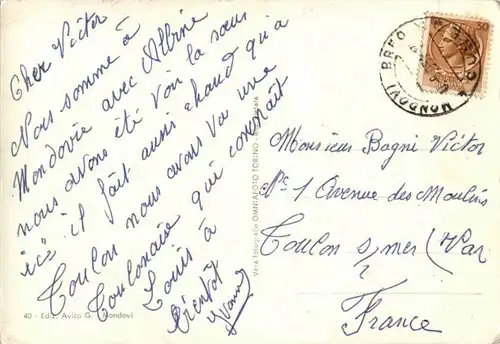 Cher Victor
Nous somme à
Mondovie avec Albine
nous avons été voir la sœur
ici il fait aussi chaud qu'a
Toulon nous avons vu une
Toulonaise qui connait
Louis à
bientôt
Yvonne
40 - Ediz. Avico G. - Mondovi
Vera fotografia OMNIAFOTO TORINO
30
MONDOVI BREO
CUNEO
Monsieur Bagni Victor
N° 1 Avenue des Moulins
Toulon s/mer (Var
France